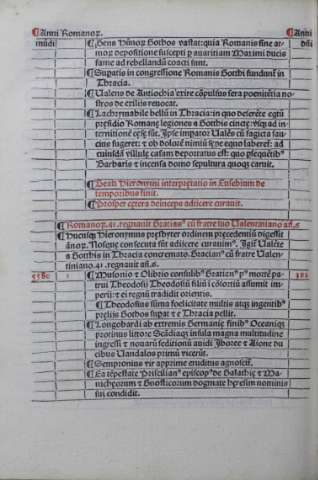 Anni Romanoꝝ. Anni
mūdi dn̄i
¶Gens Hūnoꝝ Gothos vastat: quia Romanis sine ar-
moꝝ depositione suscepti ꝑ auaritiam Maximi ducis
fame ad rebellandū coacti sunt.
¶Supatis in congressione Romanis Gotthi fundunt͛ in
Thracia.
¶Valens de Antiochia exire cōpulsus sera poenitētia no-
stros de exilijs reuocat.
¶Lachrymabile bellū in Thracia: in quo deserēte eqtū
presidio Romanę legiones a Gotthis cinctę vsq; ad in-
ternitionē cęsę sūt. Ipse imperator Valēs cū sagitta sau-
cius fugeret: et ob dolorē nimiū sępe equo laberet͛: ad
cuiusdā villulę casam deportatus est: quo ꝑsequētibꝰ
Barbaris et incensa domo sepultura quoqꝫ caruit.
¶Beati Hieronymi interpretatio in Eusebium de
temporibus finit.
¶Prosper cętera deinceps curauit adiicere.
¶Romanoꝝ.41.regnauit Gratianꝰ cū fratre suo Valentiniano añ.6
¶Hucusqꝫ Hieronymus presbyter ordinem precedentiū digessit
añoꝝ. Nosqꝫ consecuta sūt adiicere curauimꝰ. Igit͛ Valēte
a Gotthis in Thracia concremato. Gracianꝰ cū fratre Valen-
tiniano.41.regnauit añ.6.
1 ¶Ausonio ⁊ Olibrio consulibꝰ Gratianꝰ pꝰ mortē pa-
trui Theodosiū Theodosii filiū ī cōsortiū assumit im-
perii: ⁊ ei regnū tradidit orientis.
¶Theodosius summa foelicitate multis atqꝫ ingentibꝰ
prelijs Gothos supat ⁊ e Thracia pellit.
¶Longobardi ab extremis Germanię finibꝰ Oceaniqꝫ
protinus littore Scādiaqꝫ insula magna multitudine
ingressi ⁊ nouarū seditionū auidi Iborea ⁊ Aione du
cibus Uandalos primū vicerūt.
¶Sempronius vir apprime eruditus agnoscit͛.
¶Ea tēpestate Priscillianꝰ episcopꝰ de Galathię ⁊ Ma-
nichęorum ⁊ Gnosticorum dogmate hęresim nominis
sui condidit.